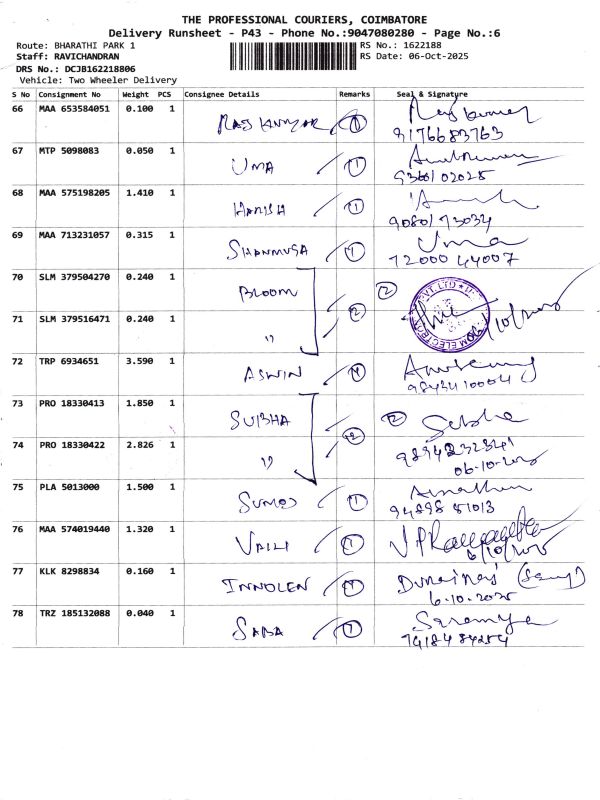 THE PROFESSIONAL COURIERS, COIMBATORE
Delivery Runsheet - P43 - Phone No.:9047080280 - Page No.:6
Route: BHARATHI PARK 1
RS No.: 1622188
Staff: RAVICHANDRAN
RS Date: 06-Oct-2025
DRS No.: DCJB162218806
Vehicle: Two Wheeler Delivery
S No Consignment No Weight PCS Consignee Details Remarks Seal & Signature
66 MAA 653584051 0.100 1 RAJ KUMAR 1
9176683763
67 MTP 5098083 0.050 1 UMA 1
9360102028
68 MAA 575198205 1.410 1 HARISH 1
9080173034
69 MAA 713231057 0.315 1 SHANMUGA 1 Uma
72000 44007
70 SLM 379504270 0.240 1 BLOOM 2 2
71 SLM 379516471 0.240 1 " 06/10/2025
72 TRP 6934651 3.590 1 ASWIN
9843410004
73 PRO 18330413 1.850 1 SUBHA 2 2
74 PRO 18330422 2.826 1 "
06-10-2025
75 PLA 5013000 1.500 1 1
94898 51013
76 MAA 574019440 1.320 1 1
6/10/2025
77 KLK 8298834 0.160 1 INNOLEN
6.10.2025
78 TRZ 185132088 0.040 1 SABA 1 Saramya